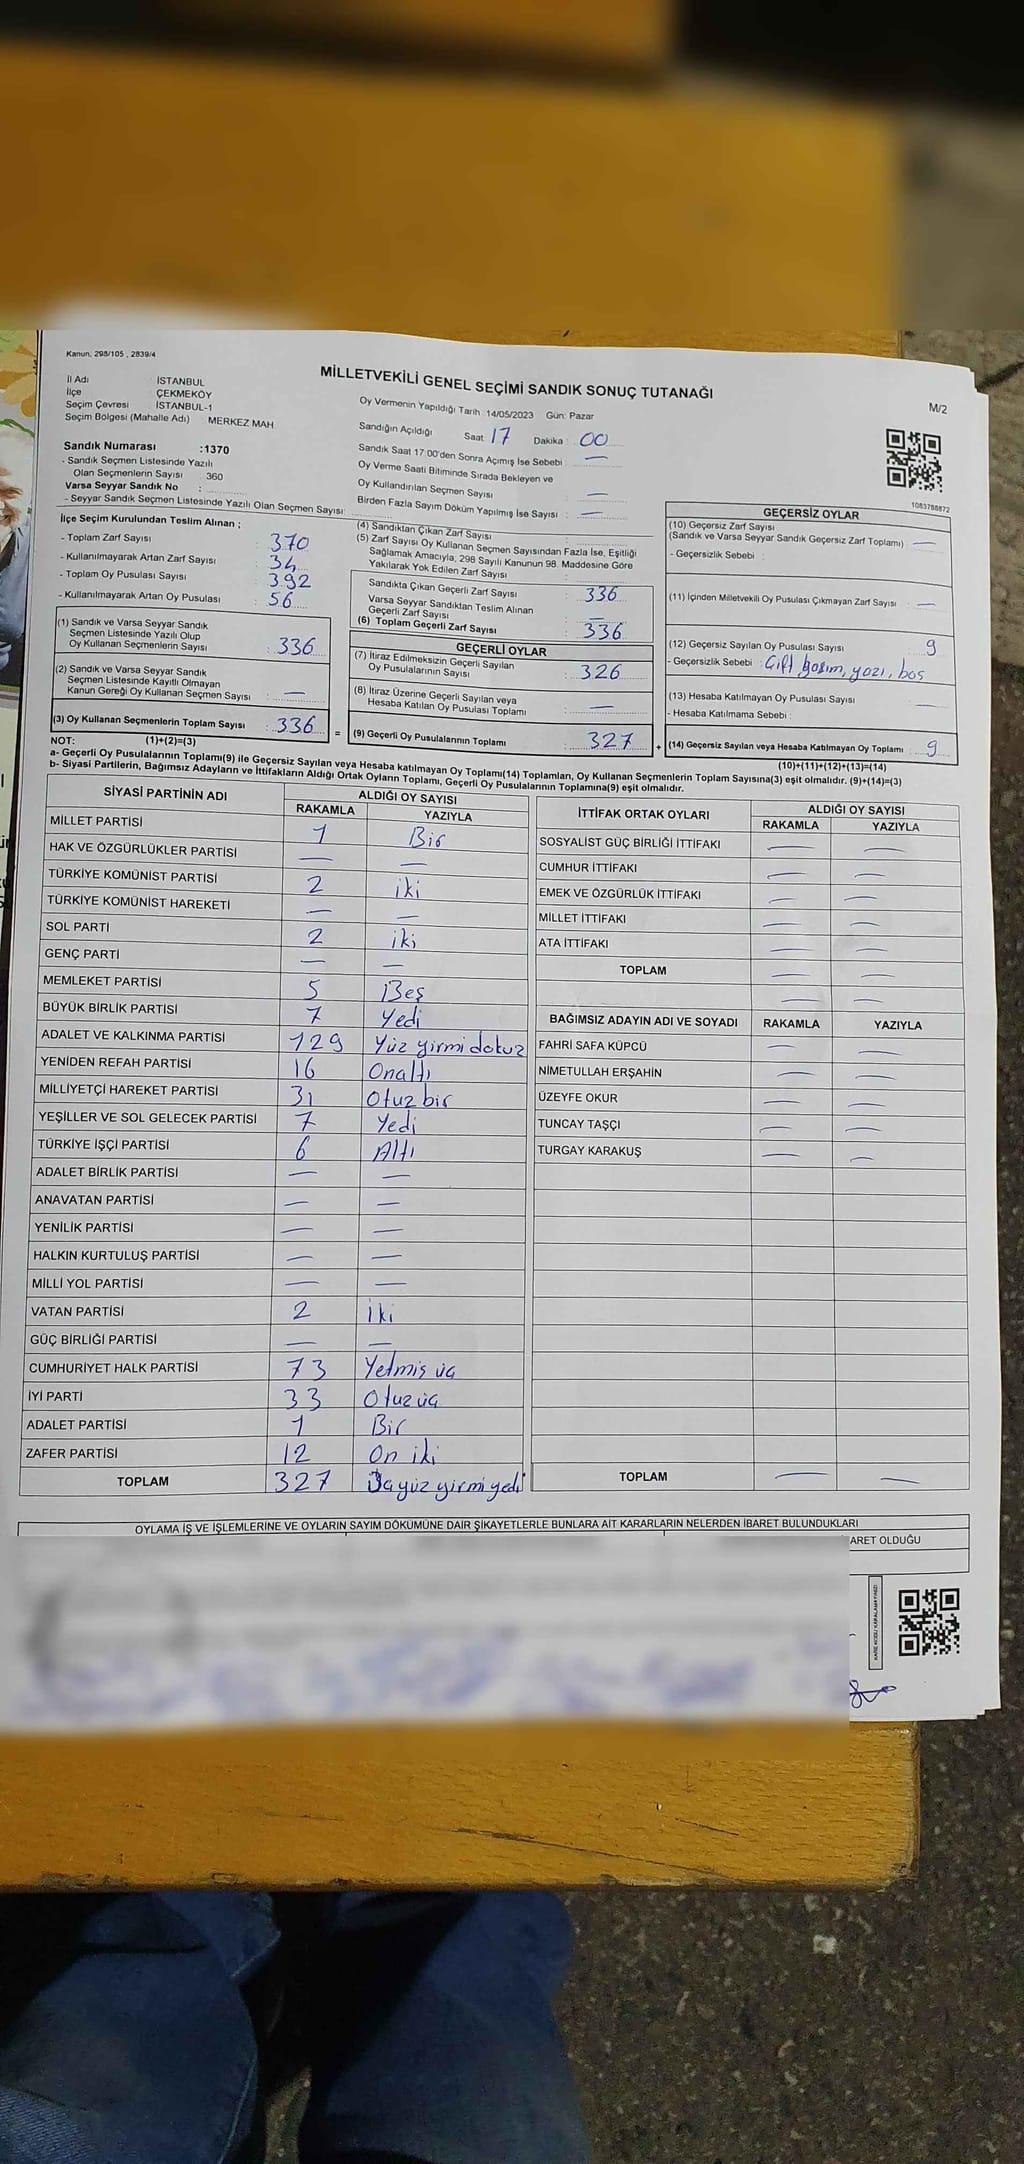 Kanun: 298/105 , 2839/4
MİLLETVEKİLİ GENEL SEÇİMİ SANDIK SONUÇ TUTANAĞI
M/2
İl Adı İSTANBUL
İlçe ÇEKMEKÖY
Seçim Çevresi İSTANBUL-1
Seçim Bölgesi (Mahalle Adı) MERKEZ MAH.
Sandık Numarası :1370
- Sandık Seçmen Listesinde Yazılı
Olan Seçmenlerin Sayısı : 360
Varsa Seyyar Sandık No :
- Seyyar Sandık Seçmen Listesinde Yazılı Olan Seçmen Sayısı:
Oy Vermenin Yapıldığı Tarih :14/05/2023 Gün: Pazar
Sandığın Açıldığı Saat: 17 Dakika : 00
Sandık Saat 17:00'den Sonra Açımış İse Sebebi : —
Oy Verme Saati Bitiminde Sırada Bekleyen ve
Oy Kullandırılan Seçmen Sayısı : —
Birden Fazla Sayım Döküm Yapılmış İse Sayısı : —
1083788872
İlçe Seçim Kurulundan Teslim Alınan ;
- Toplam Zarf Sayısı : 370
- Kullanılmayarak Artan Zarf Sayısı : 34
- Toplam Oy Pusulası Sayısı : 392
- Kullanılmayarak Artan Oy Pusulası : 56
(1) Sandık ve Varsa Seyyar Sandık
Seçmen Listesinde Yazılı Olup
Oy Kullanan Seçmenlerin Sayısı : 336
(2) Sandık ve Varsa Seyyar Sandık
Seçmen Listesinde Kayıtlı Olmayan
Kanun Gereği Oy Kullanan Seçmen Sayısı : —
(3) Oy Kullanan Seçmenlerin Toplam Sayısı : 336
(4) Sandıktan Çıkan Zarf Sayısı :
(5) Zarf Sayısı Oy Kullanan Seçmen Sayısından Fazla İse, Eşitliği
Sağlamak Amacıyla, 298 Sayılı Kanunun 98. Maddesine Göre
Yakılarak Yok Edilen Zarf Sayısı :
Sandıkta Çıkan Geçerli Zarf Sayısı : 336
Varsa Seyyar Sandıktan Teslim Alınan
Geçerli Zarf Sayısı : —
(6) Toplam Geçerli Zarf Sayısı : 336
GEÇERLİ OYLAR
(7) İtiraz Edilmeksizin Geçerli Sayılan
Oy Pusulalarının Sayısı : 326
(8) İtiraz Üzerine Geçerli Sayılan veya
Hesaba Katılan Oy Pusulası Toplamı : —
= (9) Geçerli Oy Pusulalarının Toplamı : 327
GEÇERSİZ OYLAR
(10) Geçersiz Zarf Sayısı
(Sandık ve Varsa Seyyar Sandık Geçersiz Zarf Toplamı) : —
- Geçersizlik Sebebi :
(11) İçinden Milletvekili Oy Pusulası Çıkmayan Zarf Sayısı : —
(12) Geçersiz Sayılan Oy Pusulası Sayısı : 9
- Geçersizlik Sebebi : Çift basım, yazı, boş
(13) Hesaba Katılmayan Oy Pusulası Sayısı : —
- Hesaba Katılmama Sebebi :
+ (14) Geçersiz Sayılan veya Hesaba Katılmayan Oy Toplamı : 9
NOT: (1)+(2)=(3)
(10)+(11)+(12)+(13)=(14)
a- Geçerli Oy Pusulalarının Toplamı(9) ile Geçersiz Sayılan veya Hesaba katılmayan Oy Toplamı(14) Toplamları, Oy Kullanan Seçmenlerin Toplam Sayısına(3) eşit olmalıdır. (9)+(14)=(3)
b- Siyasi Partilerin, Bağımsız Adayların ve İttifakların Aldığı Ortak Oyların Toplamı, Geçerli Oy Pusulalarının Toplamına(9) eşit olmalıdır.
SİYASİ PARTİNİN ADI ALDIĞI OY SAYISI
RAKAMLA YAZIYLA
MİLLET PARTİSİ 1 Bir
HAK VE ÖZGÜRLÜKLER PARTİSİ — —
TÜRKİYE KOMÜNİST PARTİSİ 2 iki
TÜRKİYE KOMÜNİST HAREKETİ — —
SOL PARTİ 2 iki
GENÇ PARTİ — —
MEMLEKET PARTİSİ 5 Beş
BÜYÜK BİRLİK PARTİSİ 7 Yedi
ADALET VE KALKINMA PARTİSİ 129 Yüz yirmi dokuz
YENİDEN REFAH PARTİSİ 16 Onaltı
MİLLİYETÇİ HAREKET PARTİSİ 31 Otuz bir
YEŞİLLER VE SOL GELECEK PARTİSİ 7 Yedi
TÜRKİYE İŞÇİ PARTİSİ 6 Altı
ADALET BİRLİK PARTİSİ — —
ANAVATAN PARTİSİ — —
YENİLİK PARTİSİ — —
HALKIN KURTULUŞ PARTİSİ — —
MİLLİ YOL PARTİSİ — —
VATAN PARTİSİ 2 İki
GÜÇ BİRLİĞİ PARTİSİ — —
CUMHURİYET HALK PARTİSİ 73 Yetmiş üç
İYİ PARTİ 33 Otuz üç
ADALET PARTİSİ 1 Bir
ZAFER PARTİSİ 12 On iki
TOPLAM 327 yirmi yedi
İTTİFAK ORTAK OYLARI ALDIĞI OY SAYISI
RAKAMLA YAZIYLA
SOSYALİST GÜÇ BİRLİĞİ İTTİFAKI — —
CUMHUR İTTİFAKI — —
EMEK VE ÖZGÜRLÜK İTTİFAKI — —
MİLLET İTTİFAKI — —
ATA İTTİFAKI — —
TOPLAM — —
— —
BAĞIMSIZ ADAYIN ADI VE SOYADI RAKAMLA YAZIYLA
FAHRİ SAFA KÜPCÜ — —
NİMETULLAH ERŞAHİN — —
ÜZEYFE OKUR — —
TUNCAY TAŞÇI — —
TURGAY KARAKUŞ — —
TOPLAM — —
OYLAMA İŞ VE İŞLEMLERİNE VE OYLARIN SAYIM DÖKÜMÜNE DAİR ŞİKAYETLERLE BUNLARA AİT KARARLARIN NELERDEN İBARET BULUNDUKLARI
ARET OLDUĞU
KARE KODU KARALAMAYINIZ!